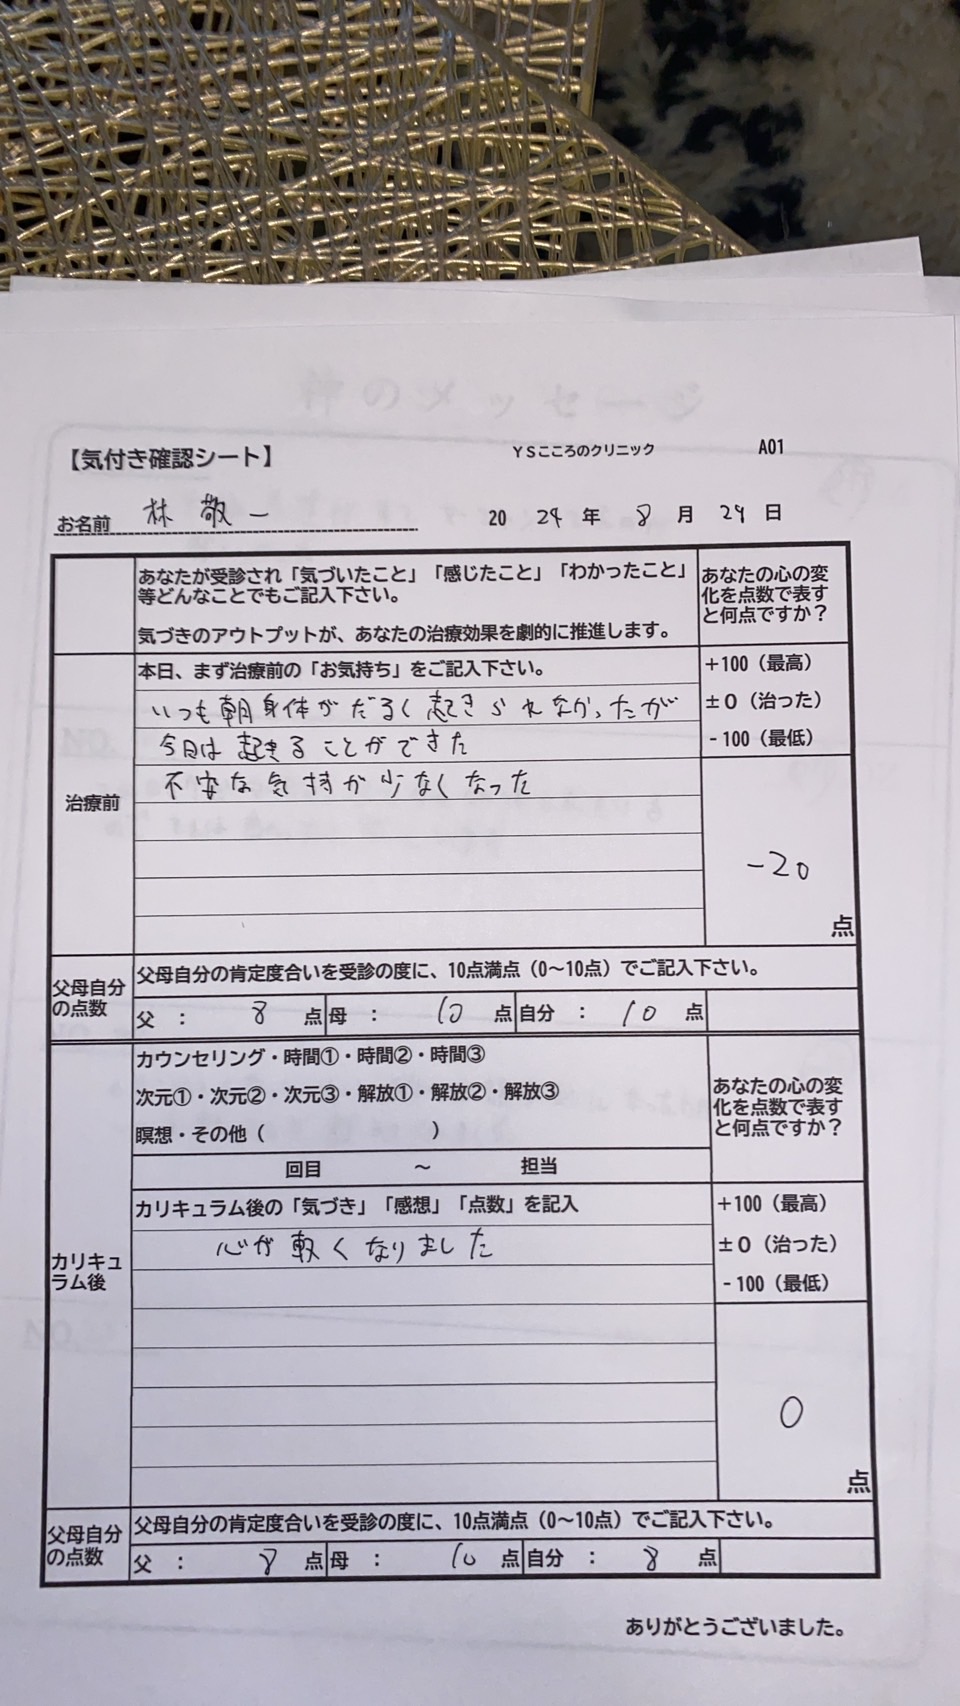 神のメッセージ
【気付き確認シート】 YSこころのクリニック A01
お名前 林 敬一 2024年 8月 29日
あなたが受診され「気づいたこと」「感じたこと」「わかったこと」
等どんなことでもご記入下さい。
気づきのアウトプットが、あなたの治療効果を劇的に推進します。
あなたの心の変
化を点数で表す
と何点ですか？
治療前
本日、まず治療前の「お気持ち」をご記入下さい。
いつも朝身体がだるく起きられなかったが
今日は起きることができた
不安な気持が少なくなった
+100（最高）
±0（治った）
-100（最低）
-20
点
父母自分
の点数
父母自分の肯定度合いを受診の度に、10点満点（0～10点）でご記入下さい。
父 ： 8 点 母 ： 10 点 自分 ： 10 点
カウンセリング・時間①・時間②・時間③
次元①・次元②・次元③・解放①・解放②・解放③
瞑想・その他（ ）
回目 ～ 担当
あなたの心の変
化を点数で表す
と何点ですか？
カリキュ
ラム後
カリキュラム後の「気づき」「感想」「点数」を記入
心が軽くなりました
+100（最高）
±0（治った）
-100（最低）
0
点
父母自分
の点数
父母自分の肯定度合いを受診の度に、10点満点（0～10点）でご記入下さい。
父 ： 8 点 母 ： 10 点 自分 ： 8 点
ありがとうございました。